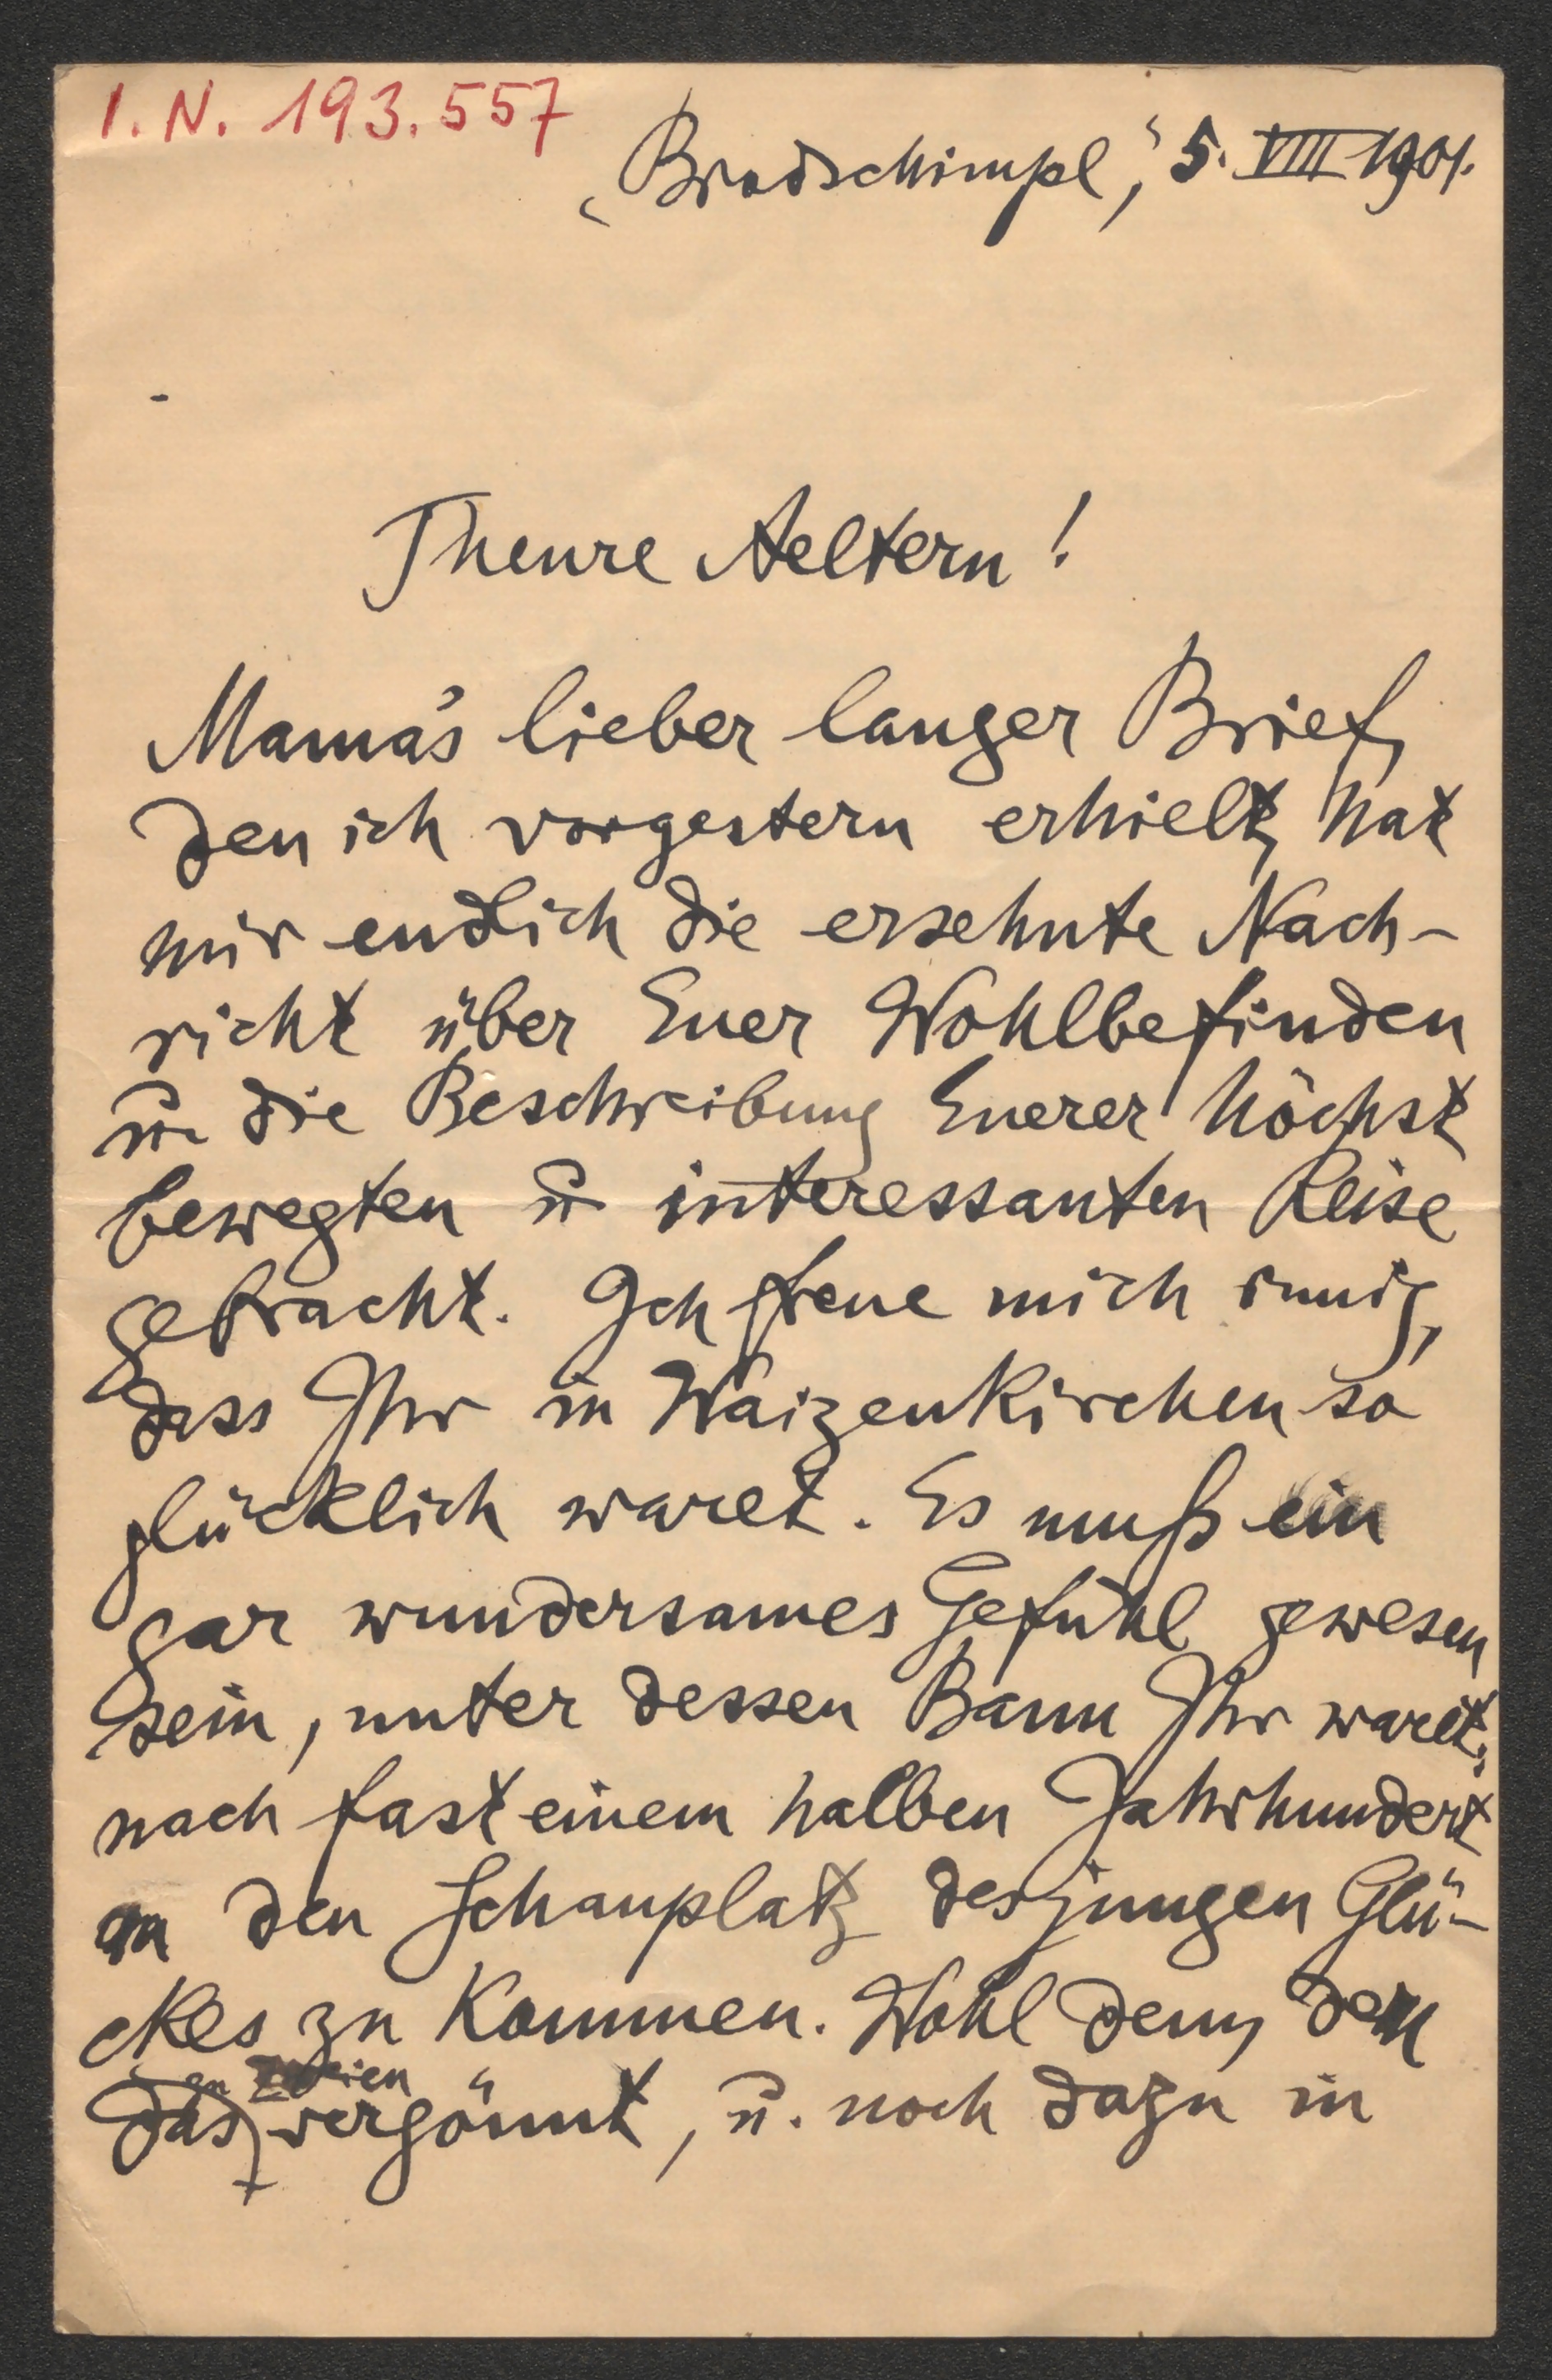 I. N. 193.557
„Bradschimpl,“ 5. VIII 1901.
Theure Aeltern!
Mama's lieber langer Brief,
den ich vorgestern erhielt, hat
mir endlich die ersehnte Nach-
richt über Euer Wohlbefinden
u. die Beschreibung Euerer höchst
bewegten u interessanten Reise
gebracht. Ich freue mich innig,
dass Ihr in Waizenkirchen so
glücklich waret. Es muß ein
gar wundersames Gefühl gewesen
sein, unter dessen Bann Ihr waret,
nach fast einem halben Jahrhundert
an den Schauplatz des jungen Glü-
ckes zu kommen. Wohl dem, dem
zu zweien
das vergönnt, u. noch dazu in